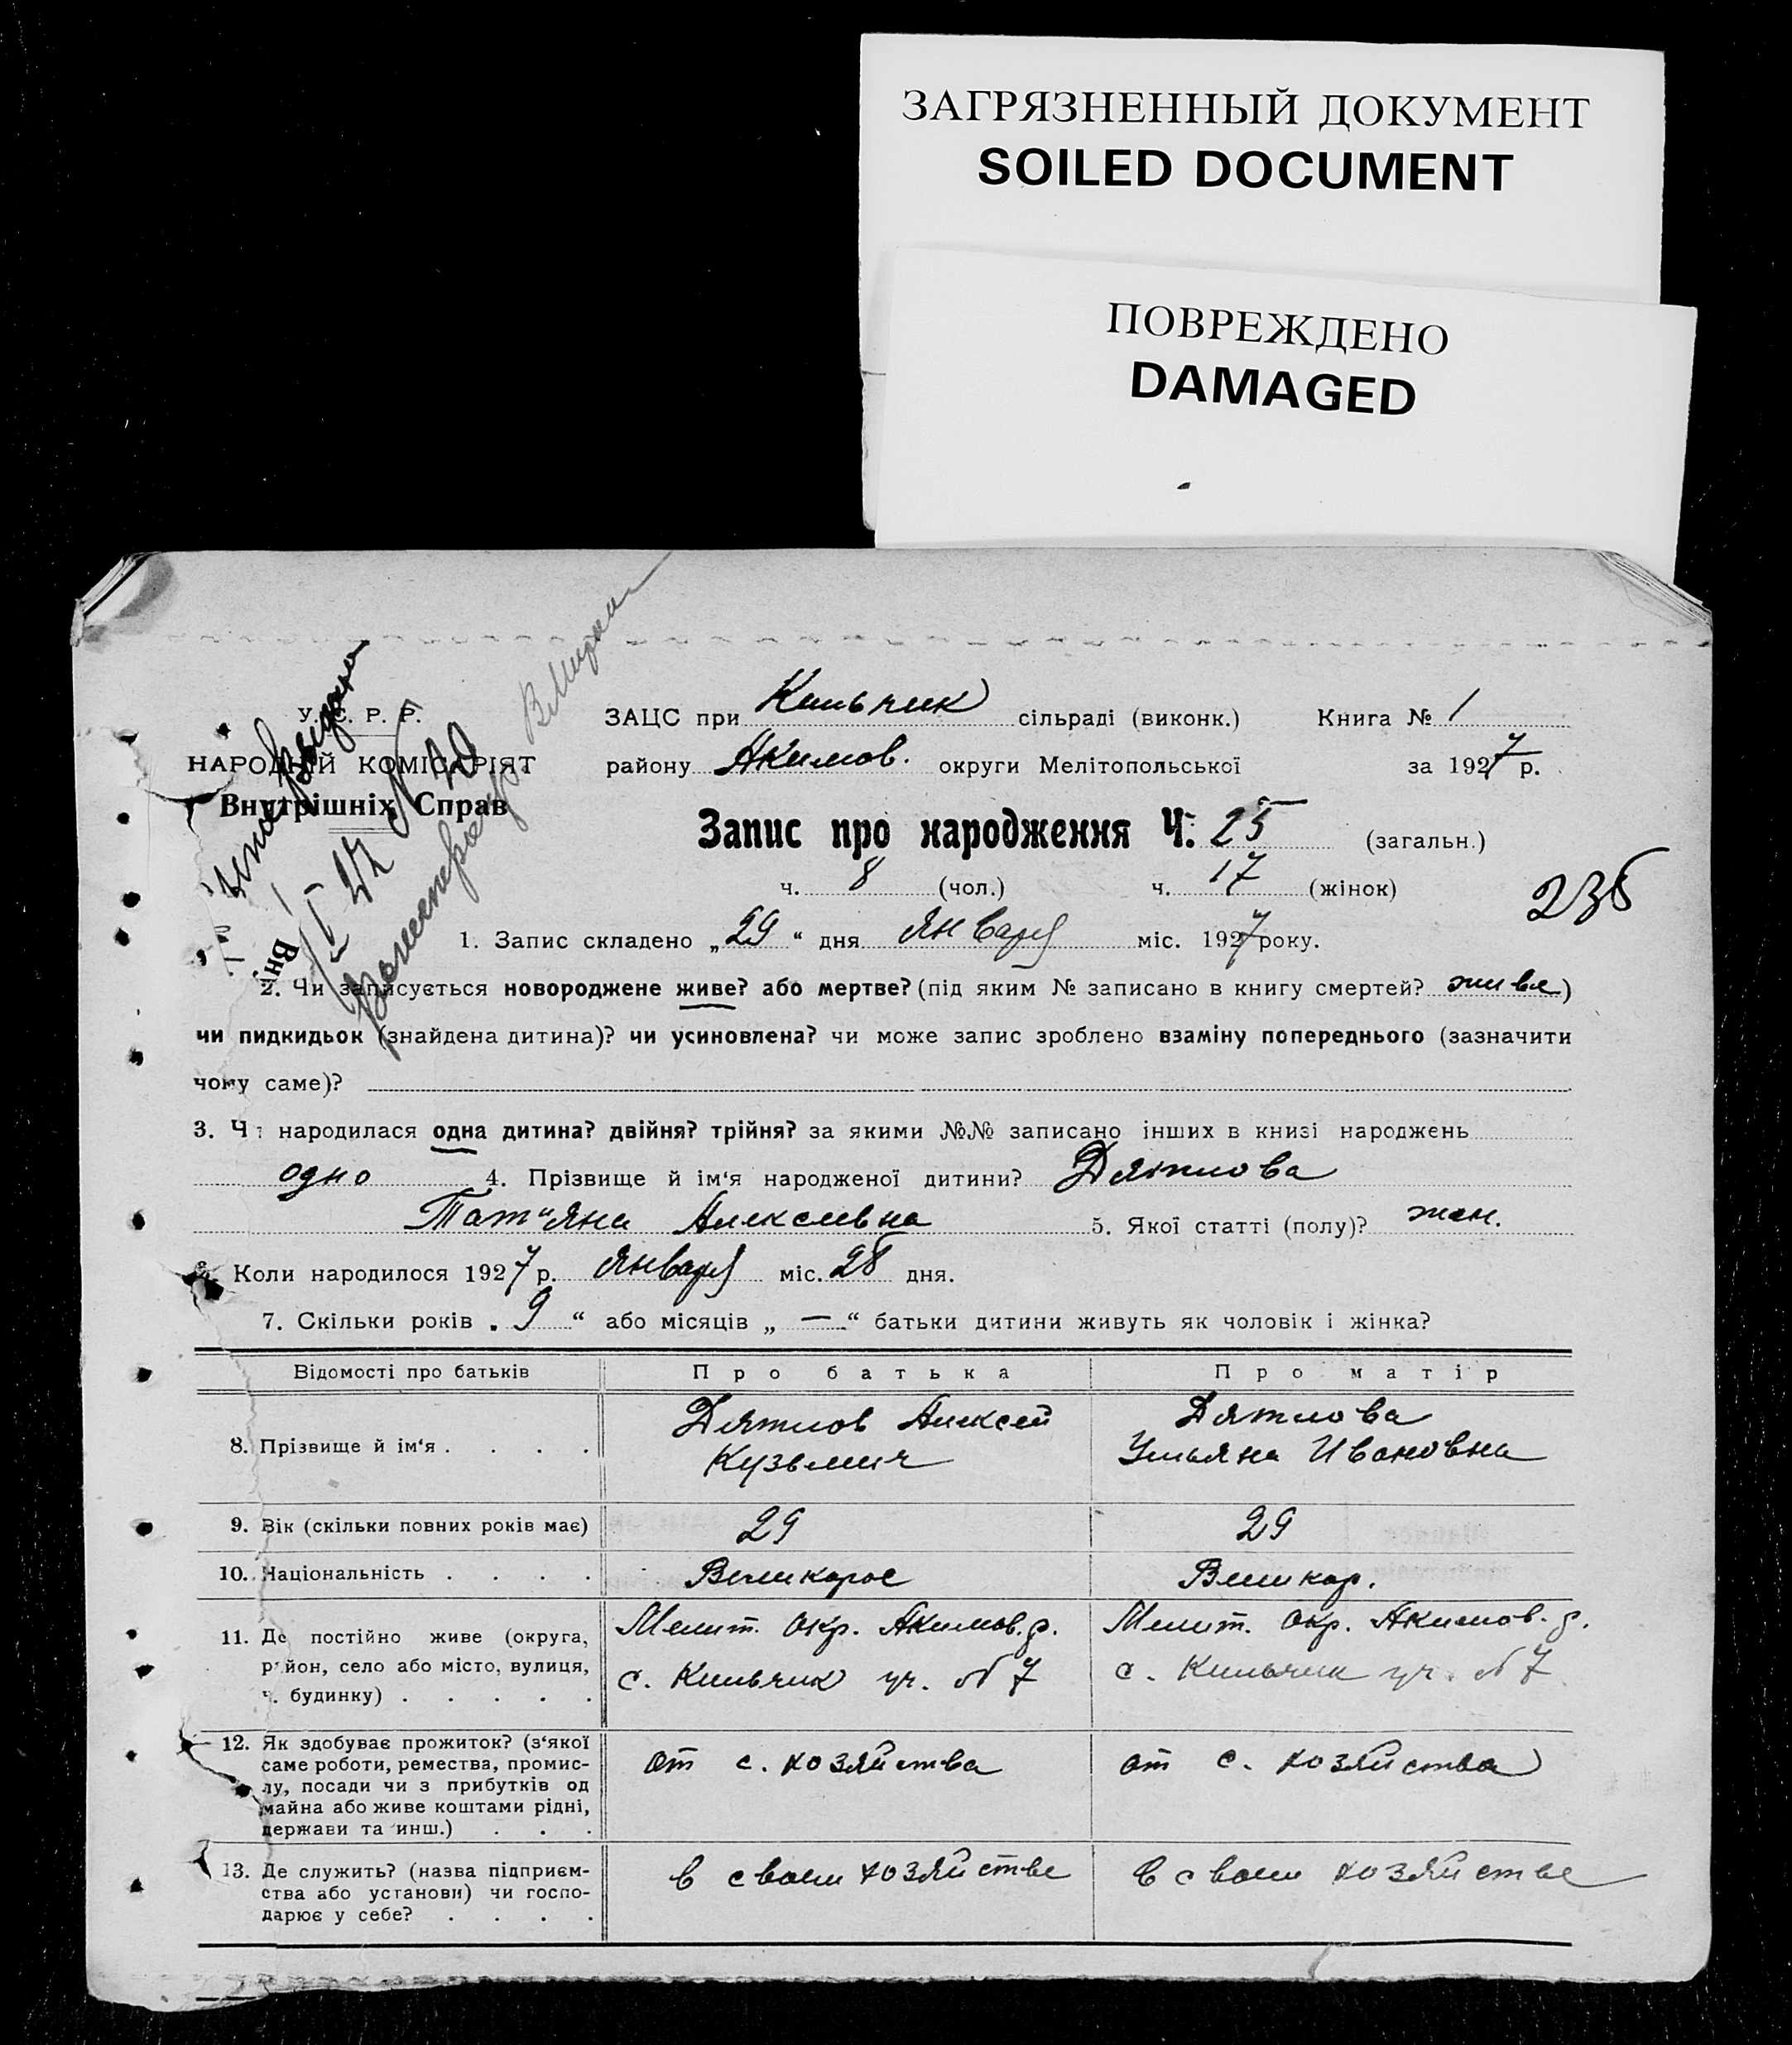 ЗАГРЯЗНЕННЫЙ ДОКУМЕНТ
SOILED DOCUMENT
ПОВРЕЖДЕНО
DAMAGED
У. С. Р. Р.
НАРОДНІЙ КОМІСАРІЯТ
Внутрішніх Справ
ЗАЦС при Кильчик сільраді (виконк.) Книга № 1
району Акимов. округи Мелітопольської за 1927 р.
Запис про народження Ч. 25 (загальн.)
ч. 8 (чол.) ч. 17 (жінок)
236
1. Запис складено „29“ дня Января міс. 1927 року.
2. Чи записується новороджене живе? або мертве? (під яким № записано в книгу смертей? живе)
чи пидкидьок (знайдена дитина)? чи усиновлена? чи може запис зроблено взаміну попереднього (зазначити
чому саме)?
3. Чи народилася одна дитина? двійня? трійня? за якими №№ записано інших в книзі народжень
одно 4. Прізвище й ім‘я народженої дитини? Дятлова
Тат"яна Алексеевна 5. Якої статті (полу)? жен.
6. Коли народилося 1927 р. Января міс. 28 дня.
7. Скільки років „ 9 “ або місяців „ — “ батьки дитини живуть як чоловік і жінка?
Відомості про батьків Про батька Про матір
8. Прізвище й ім‘я . . . . Дятлов Алексей Кузьмич Дятлова Ульяна Ивановна
9. Вік (скільки повних років має) 29 29
10. Національність . . . . Великорос Великор.
11. Де постійно живе (округа, Мелит. окр. Акимов. р. Мелит. окр. Акимов. р.
район, село або місто, вулиця, с. Кильчик уч. № 7 с. Кильчик уч. № 7
ч. будинку) . . . . .
12. Як здобуває прожиток? (з‘якої
саме роботи, ремества, промис- от с. хозяйства от с. хозяйства
лу, посади чи з прибутків од
майна або живе коштами рідні,
держави та инш.) . . .
13. Де служить? (назва підприєм- в своем хозяйстве в своем хозяйстве
ства або установи) чи госпо-
дарює у себе? . . . .